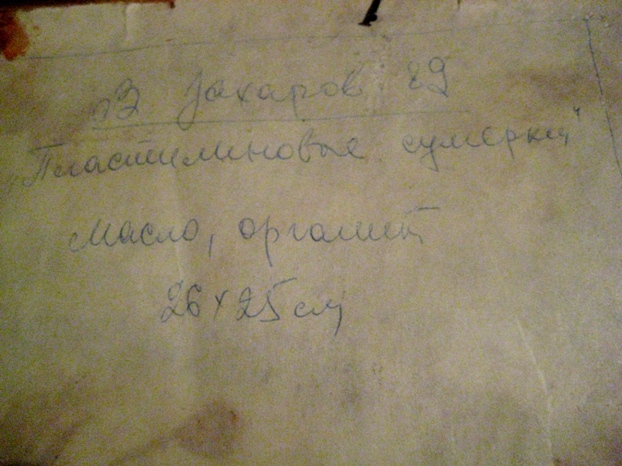 Захаров 89
„Пластилиновые сумерки"
Масло, оргалит
26x25 см